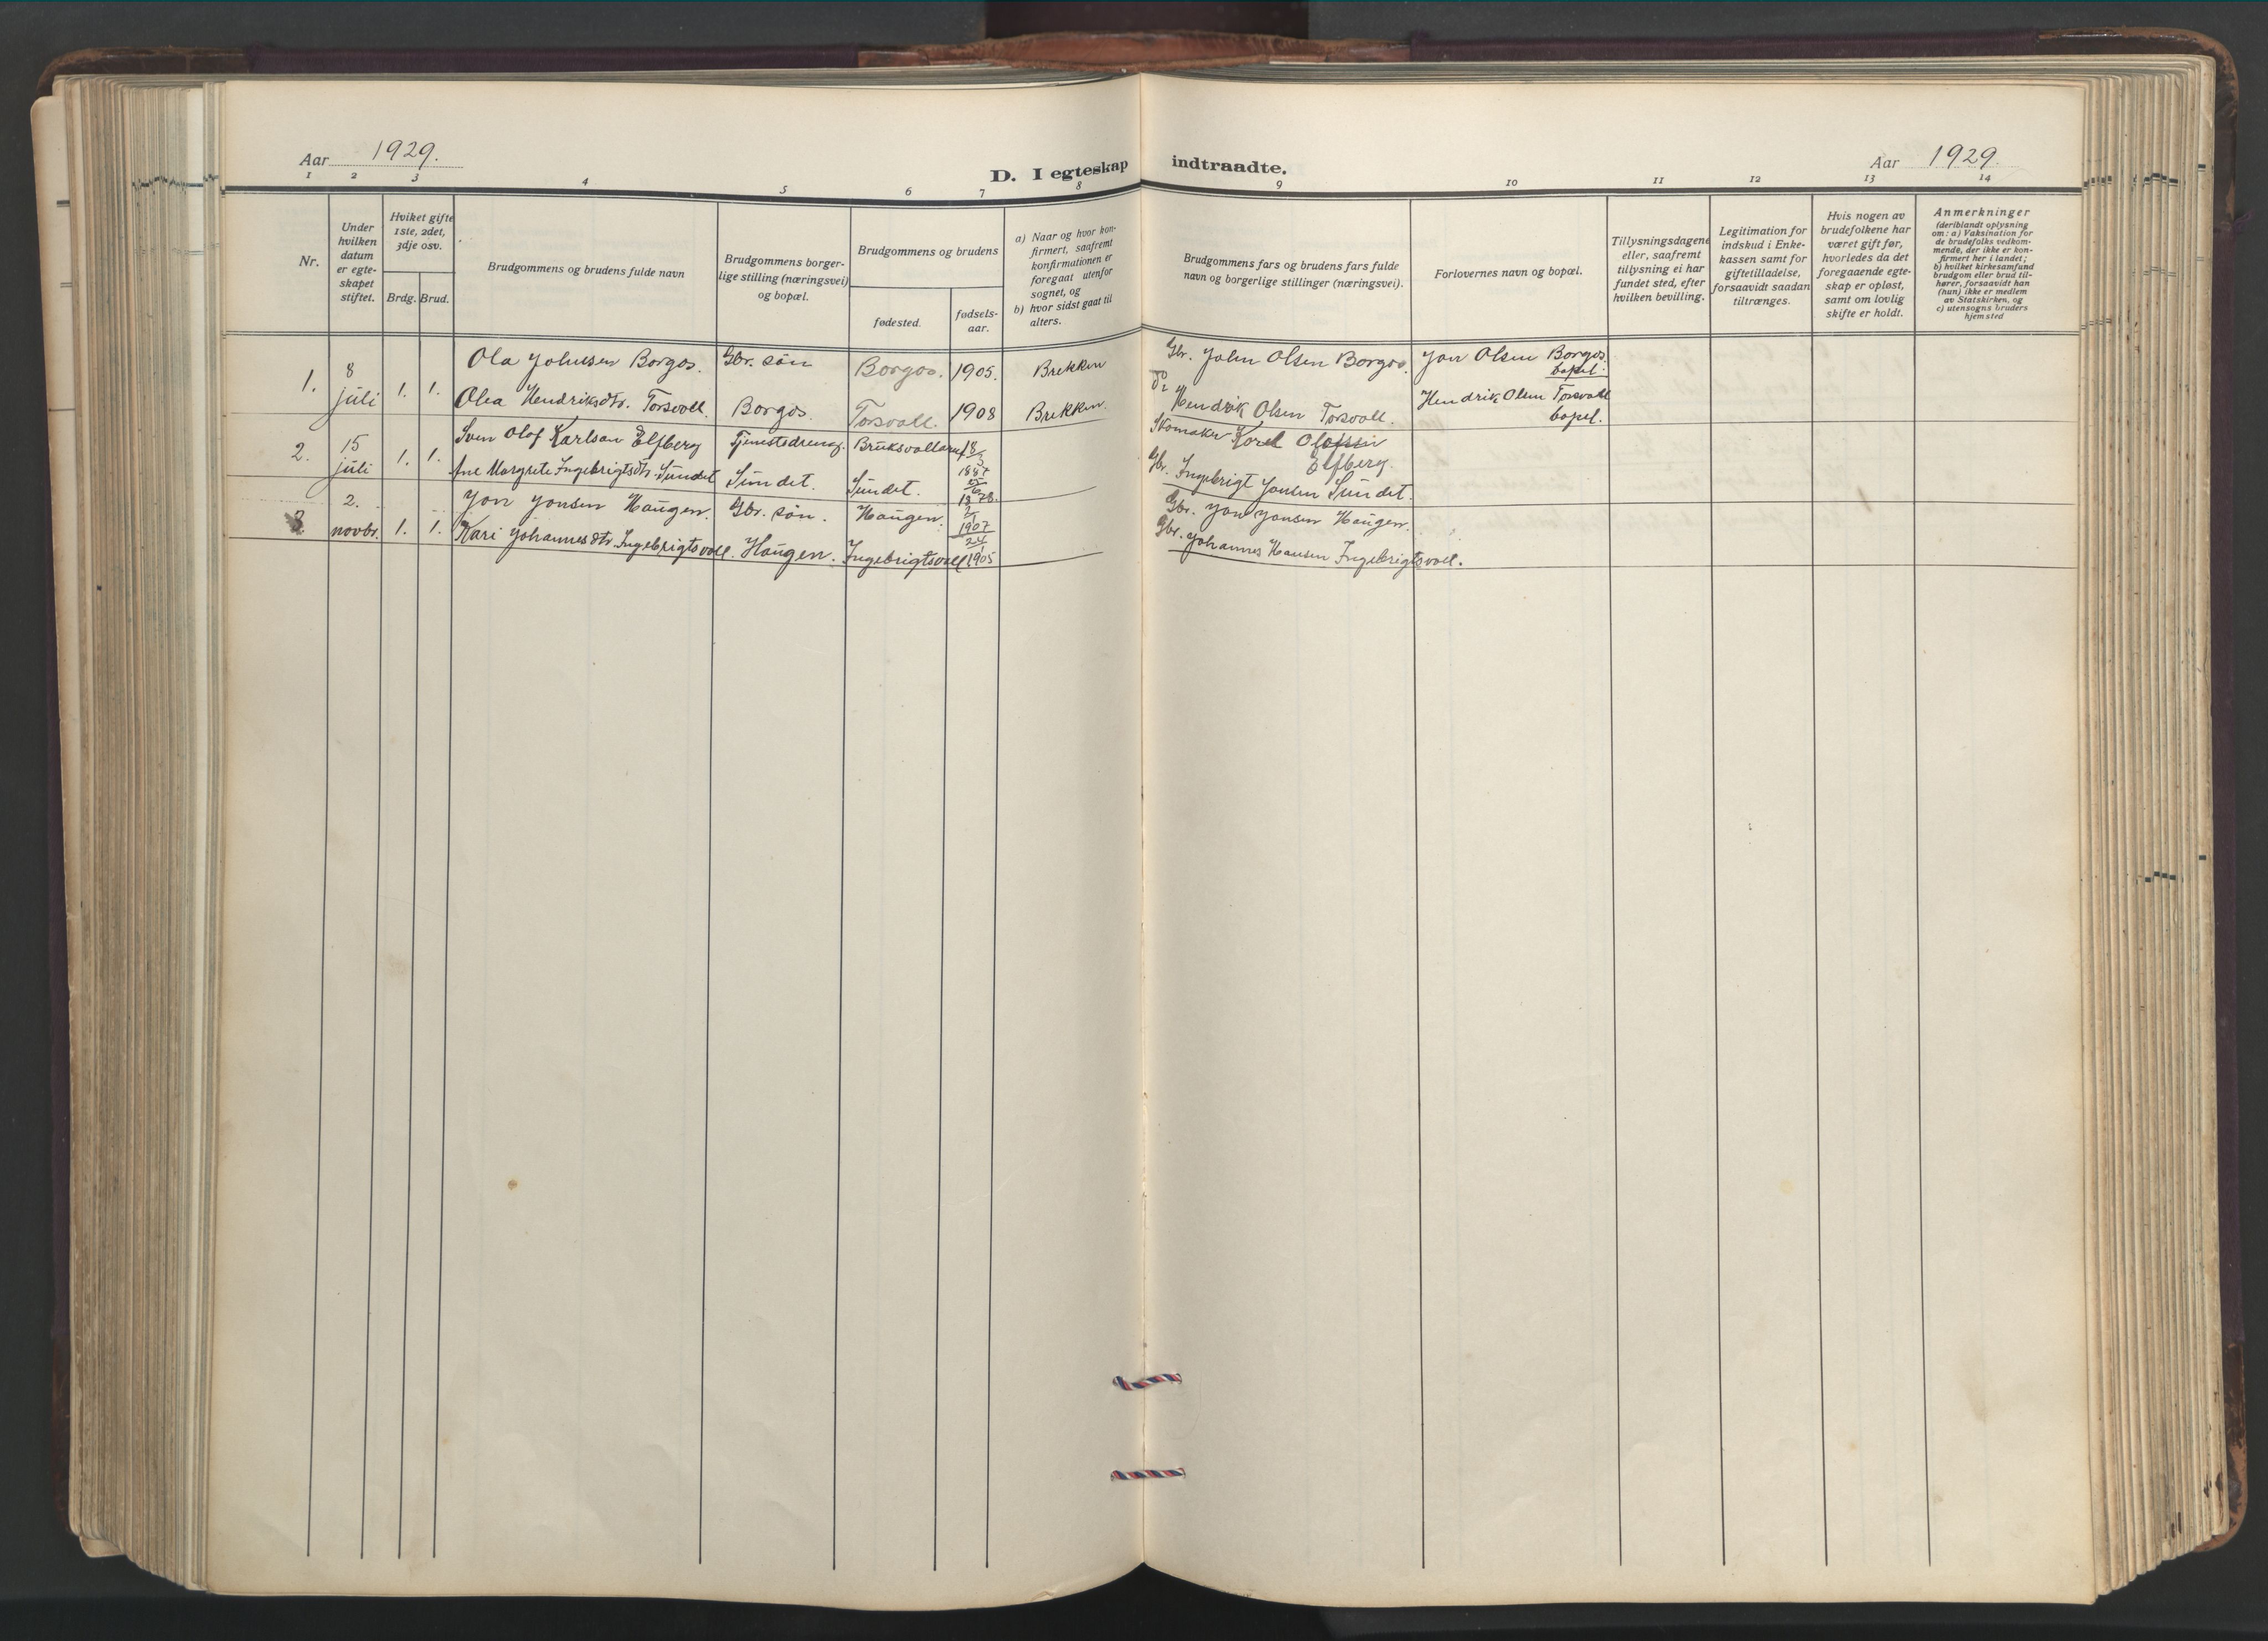 Aar 1929.
D. I egteskap indtraadte.
Aar 1929.
1 2 3 4 5 6 7 8 9 10 11 12 13 14
Nr.
Under hvilken datum er egteskapet stiftet.
Hviket gifte 1ste, 2det, 3dje osv.
Brdg. Brud.
Brudgommens og brudens fulde navn
Brudgommens borgerlige stilling (næringsvei) og bopæl.
Brudgommens og brudens
fødested.
fødselsaar.
a) Naar og hvor konfirmert, saafremt konfirmationen er foregaat utenfor sognet, og
b) hvor sidst gaat til alters.
Brudgommens fars og brudens fars fulde navn og borgerlige stillinger (næringsvei).
Forlovernes navn og bopæl.
Tillysningsdagene eller, saafremt tillysning ei har fundet sted, efter hvilken bevilling.
Legitimation for indskud i Enkekassen samt for giftetilladelse, forsaavidt saadan tiltrænges.
Hvis nogen av brudefolkene har været gift før, hvorledes da det foregaaende egteskap er opløst, samt om lovlig skifte er holdt.
Anmerkninger
(deriblandt oplysning om: a) Vaksination for de brudefolks vedkommende, der ikke er konfirmert her i landet;
b) hvilket kirkesamfund brudgom eller brud tilhører, forsaavidt han (hun) ikke er medlem av Statskirken, og
c) utensogns bruders hjemsted
1. 8 juli 1. 1.
Ola Johnsen Borgos. Gbr. søn Borgos. 1905. Brekken Gbr. John Olsen Borgos. Jon Olsen Borgos. bopel.
Olea Hendriksdtr. Torsvoll. Borgos. Torsvoll. 1908 Brekken. Do Hendrik Olsen Torsvoll. Hendrik Olsen Torsvoll bopel.
2. 15 juli 1. 1.
Sven Olof Karlson Elfberg Tjenestedreng. Bruksvallarna 18/3 1887 Skomaker Karl Olofssin Elfberg.
Ane Margrete Ingebrigtsdtr. Sundet Sundet. Sundet. 1878. Gbr. Ingebrigt Jonsen Sundet.
3. 2. novbr. 1. 1.
Jon Jonsen Haugen. Gbr. søn. Haugen. 2/1 1907 Gbr. Jon Jonsen Haugen.
Kari Johannesdtr. Ingebrigtsvoll. Haugen. Ingebrigtsvoll 24/1 1905 Gbr. Johannes Hansen Ingebrigtsvoll.